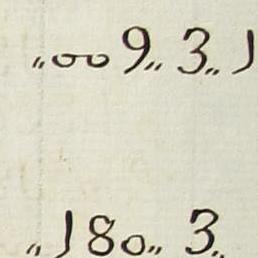 „009„ 3„ 1
„180„ 3„